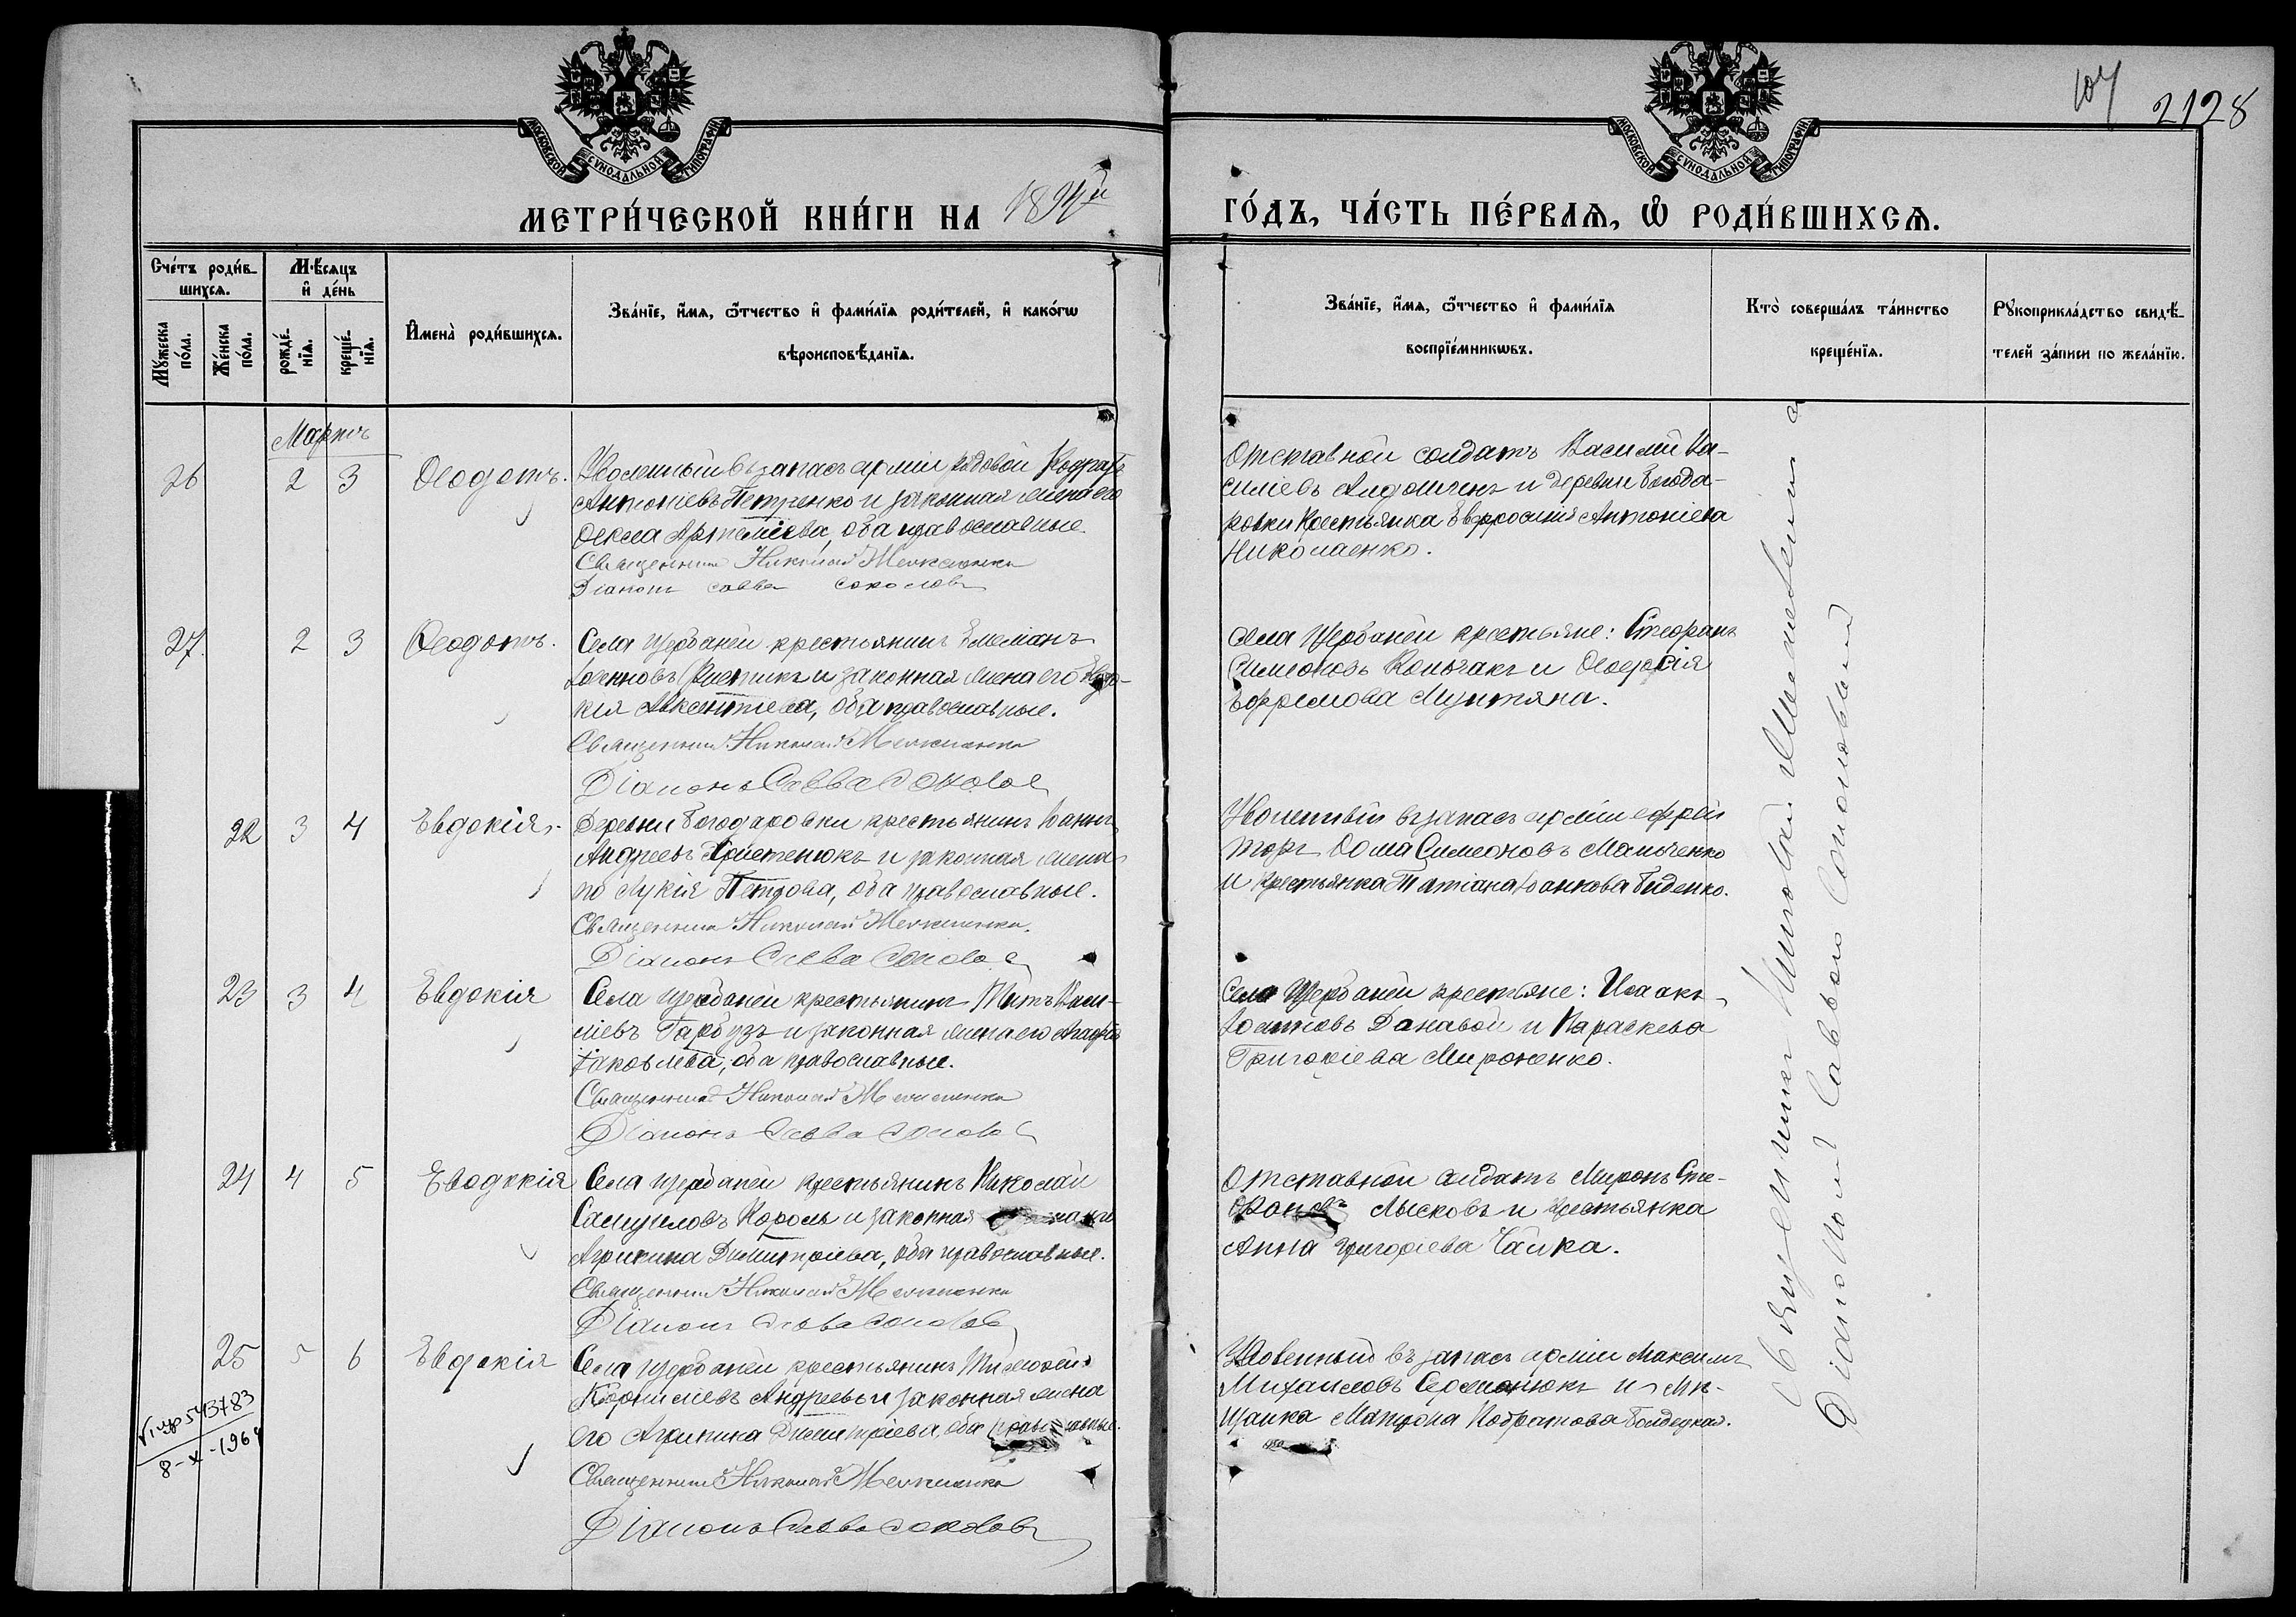 107
2128
МОСКОВСКОЙ СѴНОДАЛЬНОЙ ТИПОГРАФІИ
МОСКОВСКОЙ СѴНОДАЛЬНОЙ ТИПОГРАФІИ
МЕТРИ́ЧЕСКОЙ КНИ́ГИ НА 1894й
ГО́ДЪ, ЧА́СТЬ ПЕ́РВАѦ, Ѽ РОДИ́ВШИХСѦ.
Сче́тъ роди́в-
шихсѧ.
Мꙋ́жеска по́ла.
Же́нска по́ла.
Мѣ́сѧцъ
и҆ де́нь
рожде́-
нїѧ.
креще́-
нїѧ.
И҆мена̀ роди́вшихсѧ.
Зва́нїе, и҆́мѧ, ѻ҆́тчество и҆ фами́лїѧ роди́телей, и҆ како́гѡ
вѣроисповѣ́данїѧ.
Зва́нїе, и҆́мѧ, ѻ҆́тчество и҆ фами́лїѧ
воспрїе́мникѡвъ.
Кто̀ соверша́лъ та́инство
креще́нїѧ.
Рꙋкоприкла́дство свидѣ́-
телей за́писи по жела́нїю.
Мартъ
26 2 3 Ѳеодотъ.
Уволенный въ запасъ арміи рядовой Кодратъ
Антоніевъ Петренко и законная жена его
Ѳекла Артеміева, оба православные
Священникъ Николай
Діаконъ Савва Соколовъ
Отставной солдатъ Василій Ва-
силіевъ и деревни Богода-
ровки крестьянка Евфросинія Антоніева
Николаенко.
27. 2 3 Ѳеодотъ.
Села Щербаней крестьянинъ Емеліанъ
Іоанновъ и законная жена его Евдо-
кія Авксентіева, оба православные.
Священникъ Николай
Діаконъ Савва Соколовъ
Села Щербаней крестьяне: Стефанъ
Симеоновъ Колычакъ и Ѳеодосія
Ефремова Мунтяна.
22 3 4 Евдокія.
Деревни Богодаровки крестьянинъ Іоаннъ
Андреевъ Христенюкъ и законная жена
его Лукія Петрова, оба православные.
Священникъ Николай
Діаконъ Савва Соколовъ
Уволенный въ запасъ арміи ефрей
торъ Ѳома Симеоновъ Мальченко
и крестьянка Татіана Іоаннова Биденко.
23 3 4 Евдокія
Села Щербаней крестьянинъ Титъ Васи-
ліевъ Гарбузъ и законная жена его Агафія
Іаковлева, оба православные.
Священникъ Николай
Діаконъ Савва Соколовъ
Села Щербаней крестьяне: Исаакъ
Донавой и Параскева
Григоріева Мироненко.
24 4 5 Евдокія
Села Щербаней крестьянинъ Николай
Самуиловъ Король и законная жена его
Агрипина Димитріева, оба православные.
Священникъ Николай
Діаконъ Савва Соколовъ
Отставной солдатъ Миронъ Сте-
фановъ Лысковъ и крестьянка
Анна Григоріева Чайка.
25 5 6 Евдокія
Села Щербаней крестьянинъ Тимоѳей
Корниліевъ Андреевъ и законная жена
его Агрипина Димитріева, оба православные.
Священникъ Николай
Діаконъ Савва Соколовъ
Уволенный въ запасъ арміи Максимъ
Михаиловъ Сермонюкъ и мѣ-
щанка Матрона Кодратова
543783
8-X-1964
Священникъ Николай
Діакономъ Саввою Соколовымъ